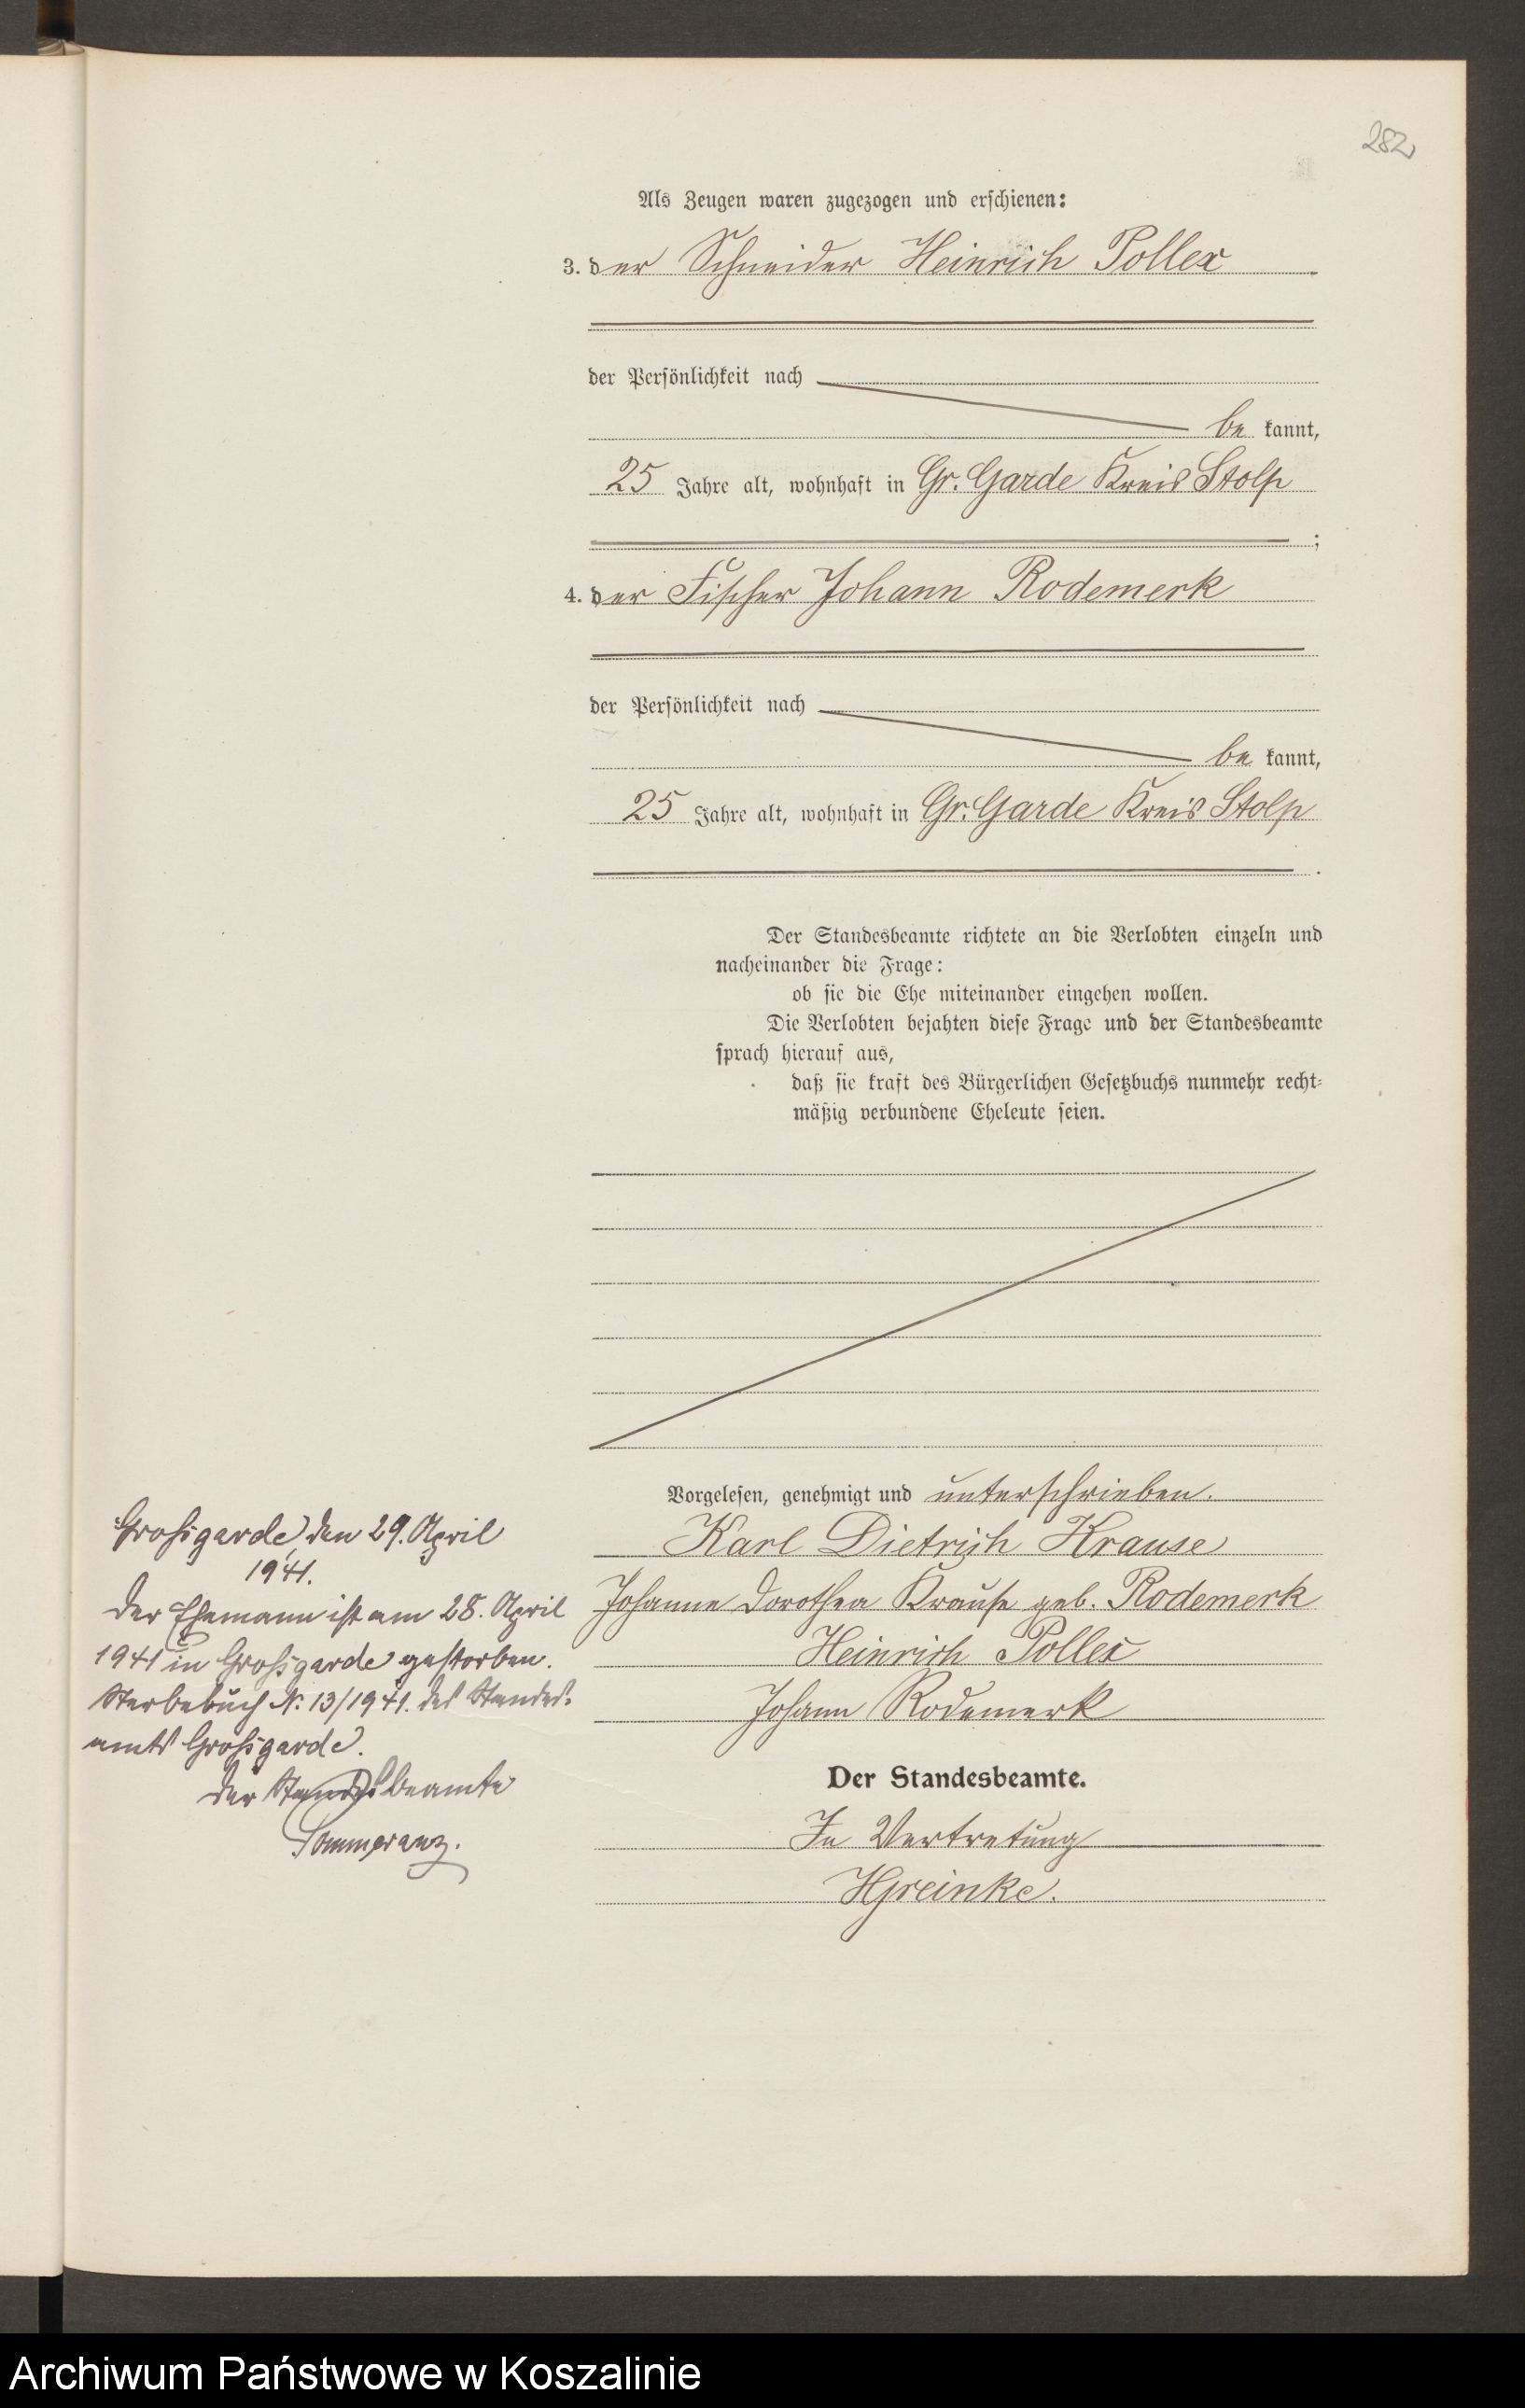 282
Als Zeugen waren zugezogen und erschienen:
3. der Schneider Heinrich Pollex
der Persönlichkeit nach
be kannt,
25 Jahre alt, wohnhaft in Gr. Garde Kreis Stolp
;
4. der Fischer Johann Rodemerk
der Persönlichkeit nach
be kannt,
25 Jahre alt, wohnhaft in Gr. Garde Kreis Stolp
.
Der Standesbeamte richtete an die Verlobten einzeln und
nacheinander die Frage:
ob sie die Ehe miteinander eingehen wollen.
Die Verlobten bejahten diese Frage und der Standesbeamte
sprach hierauf aus,
daß sie kraft des Bürgerlichen Gesetzbuchs nunmehr recht-
mäßig verbundene Eheleute seien.
Vorgelesen, genehmigt und unterschrieben.
Karl Dietrich Krause
Johanne Dorothea Krause geb. Rodemerk
Heinrich Pollex
Johann Rodemerk
Der Standesbeamte.
In Vertretung
HGreinke.
Grossgarde, den 29. April
1941.
Der Ehemann ist am 28. April
1941 in Grossgarde gestorben.
Sterbebuch N. 13/1941. des Standes-
amts Grossgarde.
Der Standesbeamte
Pommeranz.
Archiwum Państwowe w Koszalinie